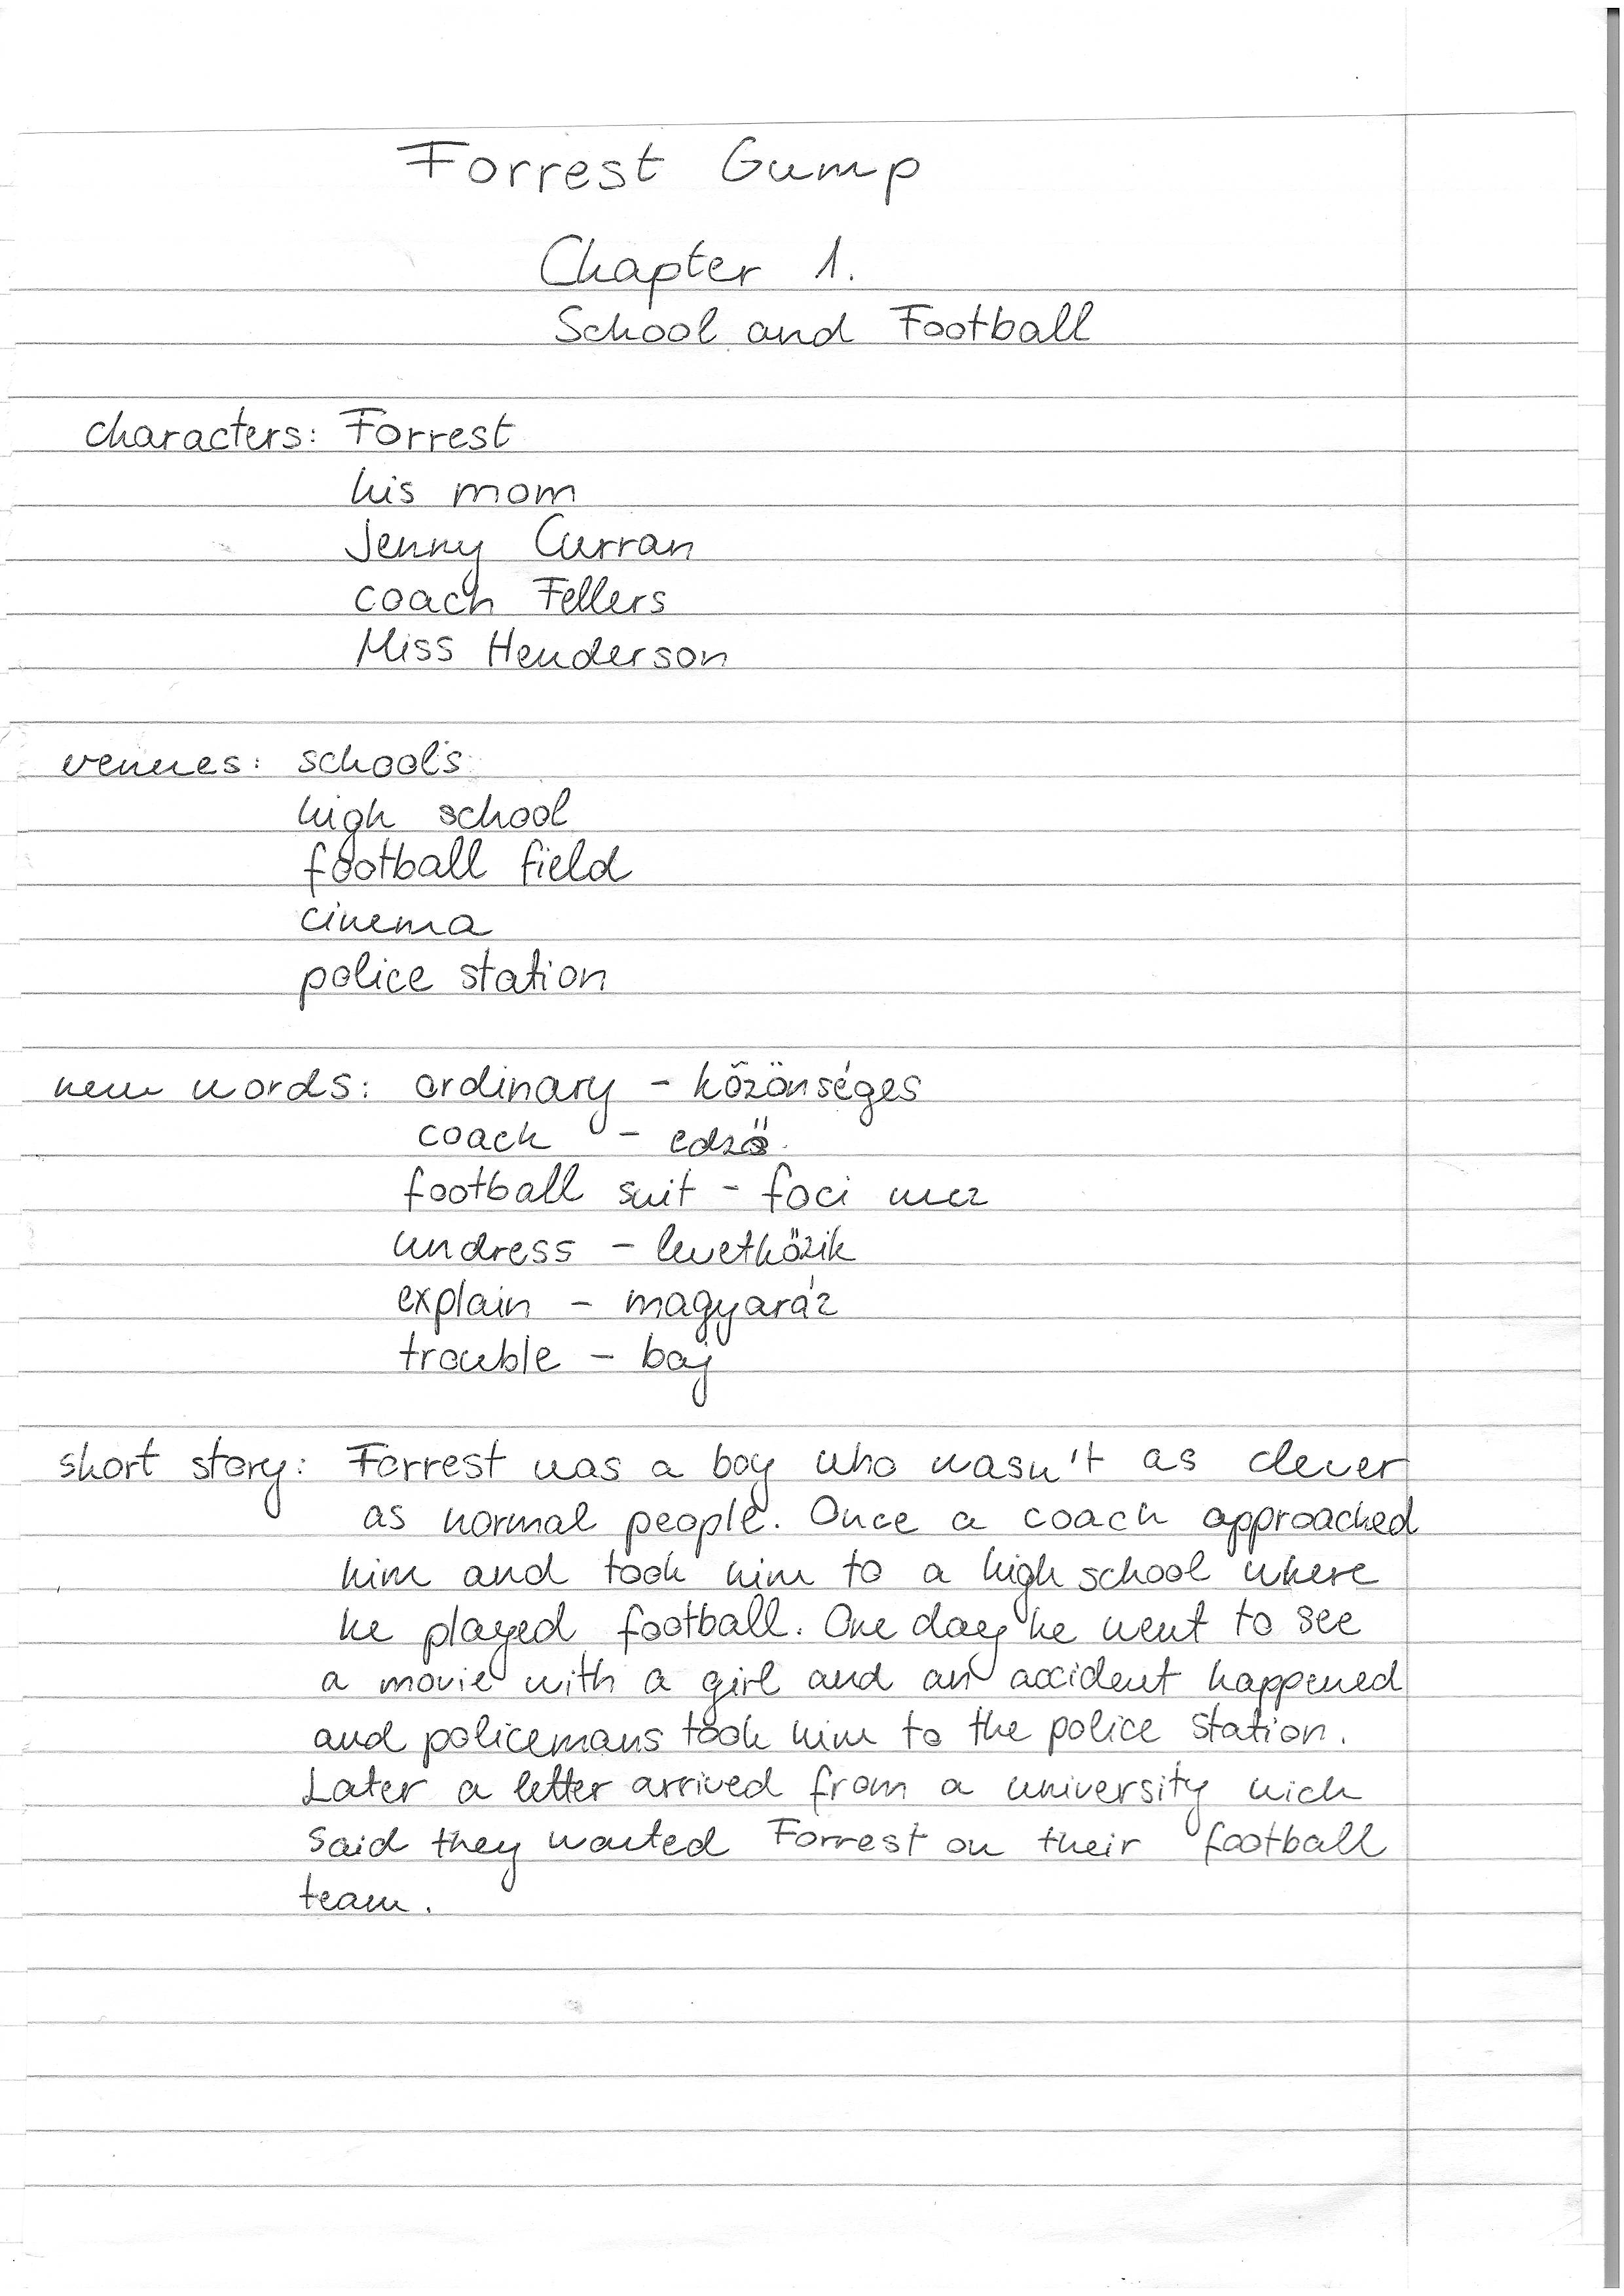 Forrest Gump
Chapter 1.
School and Football
characters: Forrest
his mom
Jenny Curran
coach Fellers
Miss Henderson
venues: schools
high school
football field
cinema
police station
new words: ordinary - közönséges
coach - edző
football suit - foci mez
undress - levetkőzik
explain - magyaráz
trouble - baj
short story: Forrest was a boy who wasn't as clever
as normal people. Once a coach approached
him and took him to a high school where
he played football. One day he went to see
a movie with a girl and an accident happened
and policemans took him to the police station.
Later a letter arrived from a university wich
said they wanted Forrest on their football
team.